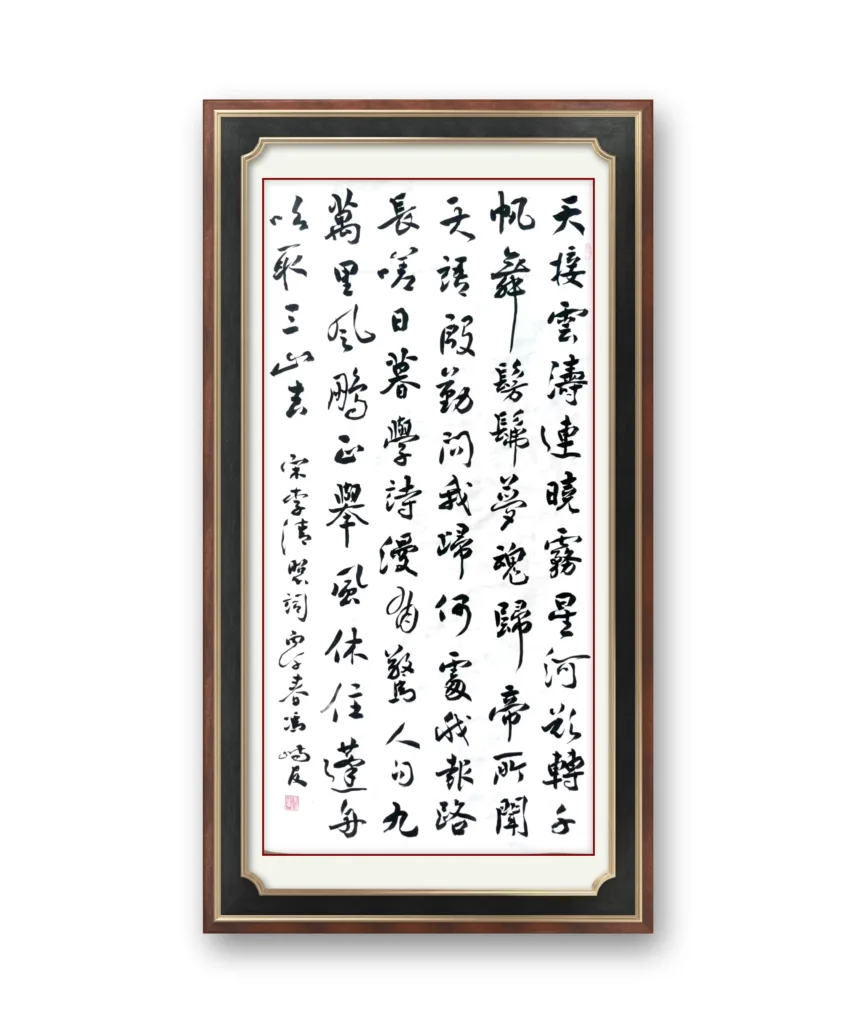 天接雲濤連曉霧星河欲轉千
帆舞髣髴夢魂歸帝所聞
天語殷勤問我歸何處我報路
長嗟日暮學詩漫有驚人句九
萬里風鵬正舉風休住蓬舟
吹取三山去 宋李清照詞 春馮